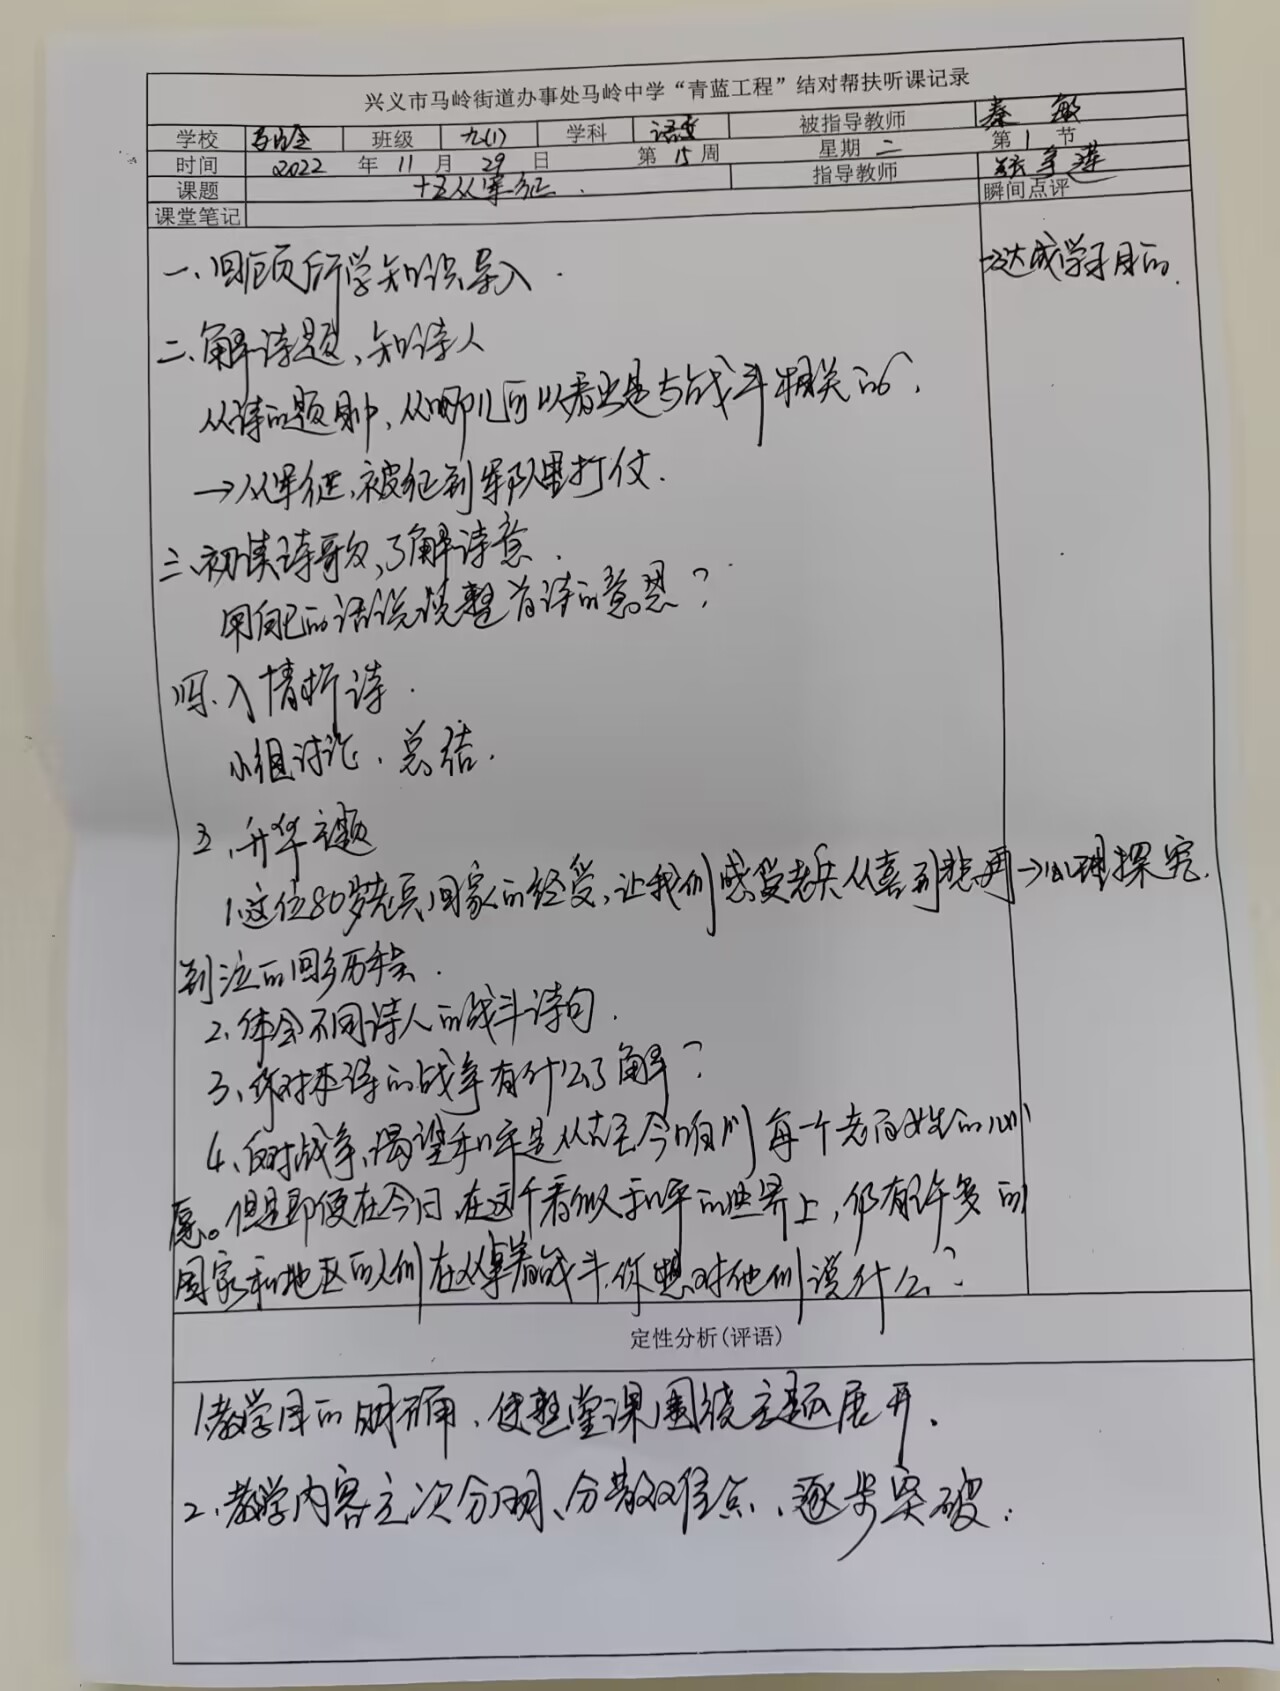 兴义市马岭街道办事处马岭中学“青蓝工程”结对帮扶听课记录
学校 班级 九(1) 学科 语文 被指导教师 秦敏
时间 2022年11月29日 第15周 星期二 第1节
课题 十五从军征. 指导教师
课堂笔记 瞬间点评
一、回顾所学知识导入. →达成学习目的.
二、解诗题、知诗人
从诗的题目中,从哪儿可以看出是与战斗相关的,
→从军征、被征到军队里打仗.
三、初读诗歌,了解诗意.
用自己的话说说整首诗的意思?
四、入情析诗.
小组讨论、总结.
五、升华主题
1、这位80岁老兵回家的经受,让我们感受老兵从喜到悲再→心理探究.
到泣的回乡历程.
2、体会不同诗人的战斗诗句.
3、你对本诗的战争有什么了解?
4、反对战争、渴望和平是从古至今咱们每一个老百姓的心
愿。但是即便在今日,在这个看似和平的世界上,仍有许多的
国家和地区的人们在从事着战斗.你想对他们说什么?
定性分析(评语)
1.教学目的明确、使整堂课围绕主题展开.
2、教学内容主次分明、分散难点、逐步突破.